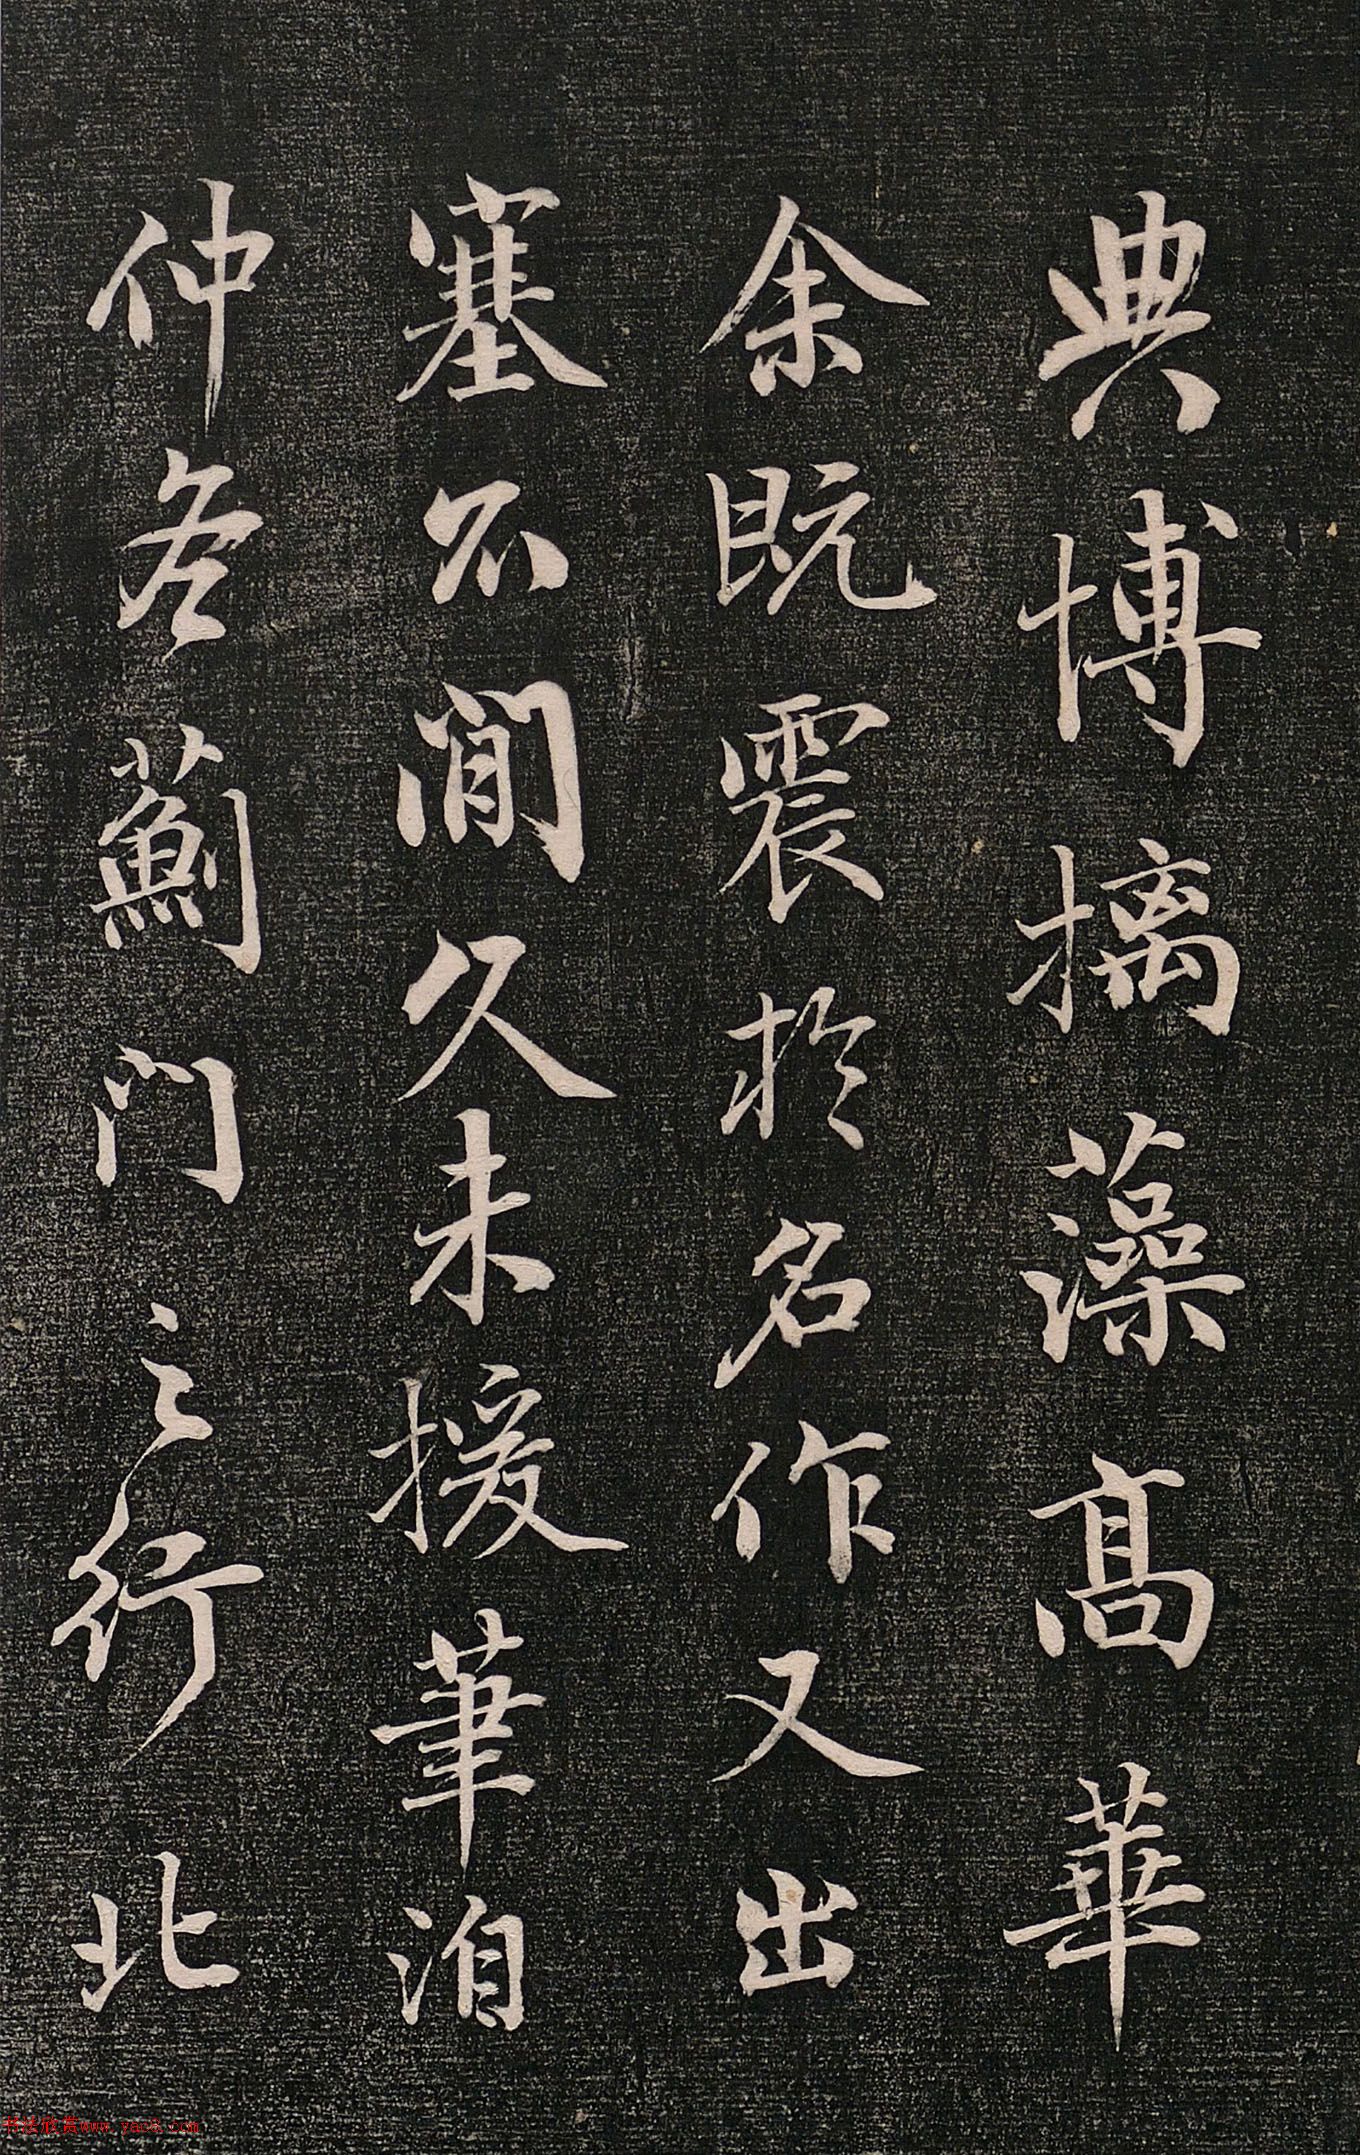 典博摛藻高華
余既震於名作又出
塞不閒久未援筆洎
仲冬薊門之行北
书法欣赏www.yac8.com